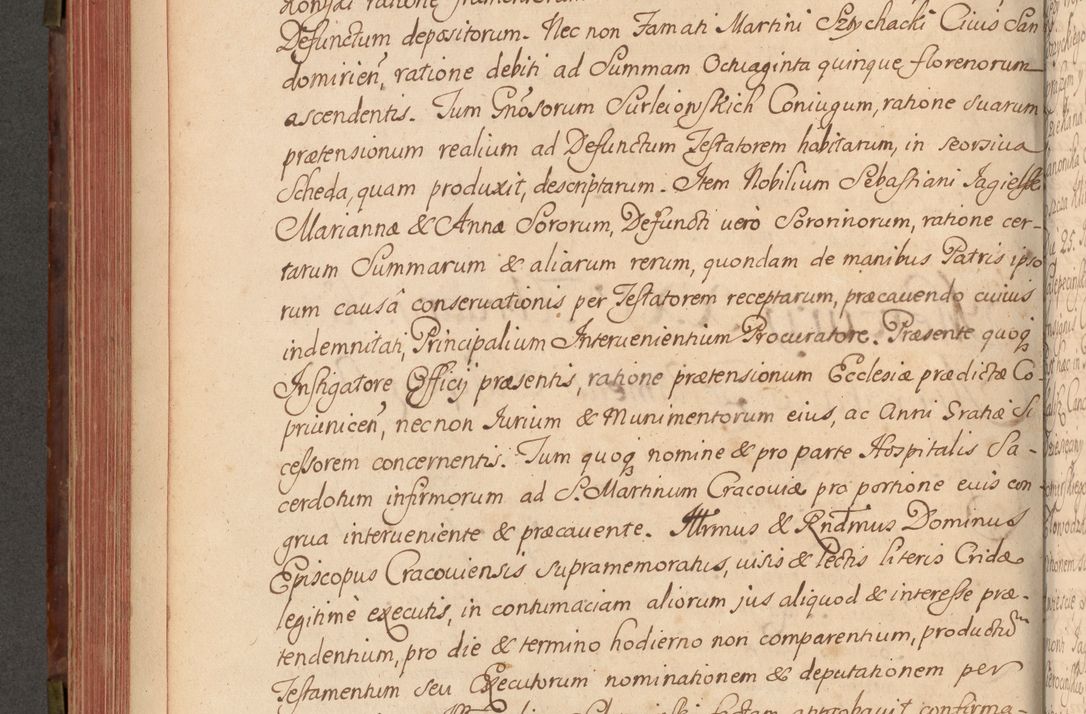 Defunctum depositorum. Nec non Famati Martini Szychacki Civis San
domirien, ratione debiti ad Summam Octuaginta quinque florenorum
ascendentis. Tum Gnosorum Surleiowskich Coniugum, ratione suarum
prætensionum realium ad Defunctum Testatorem habitarum, in seorsiva
Scheda, quam produxit, descriptarum. Item Nobilium Sebastiani Jagielsk
Mariannæ & Annæ Sororum, Defuncti vero Sororinorum, ratione cer-
tarum Summarum & aliarum rerum, quondam de manibus Patris ipso
rum causâ conservationis per Testatorem receptarum, præcavendo cuius
indemnitati, Principalium Intervenientium Procuratore. Præsente quoq
Instigatore Officij præsentis, ratione prætensionum Ecclesiæ prædictæ Co-
priunicen, necnon Iurium & Munimentorum eius, ac Anni Gratiæ Suc
cessorem concernentis. Tum quoq nomine & pro parte Hospitalis Sa-
cerdotum infirmorum ad S. Martinum Cracoviæ pro portione eius con-
grua interveniente & præcavente. Illrmus & Rndmus Dominus
Episcopus Cracoviensis supramemoratus, visis & lectis literis Cridæ
legitimè executis, in contumaciam aliorum jus aliquod & interesse præ-
tendentium, pro die & termino hodierno non comparentium, productum
Testamentum seu Executorum nominationem & deputationem per